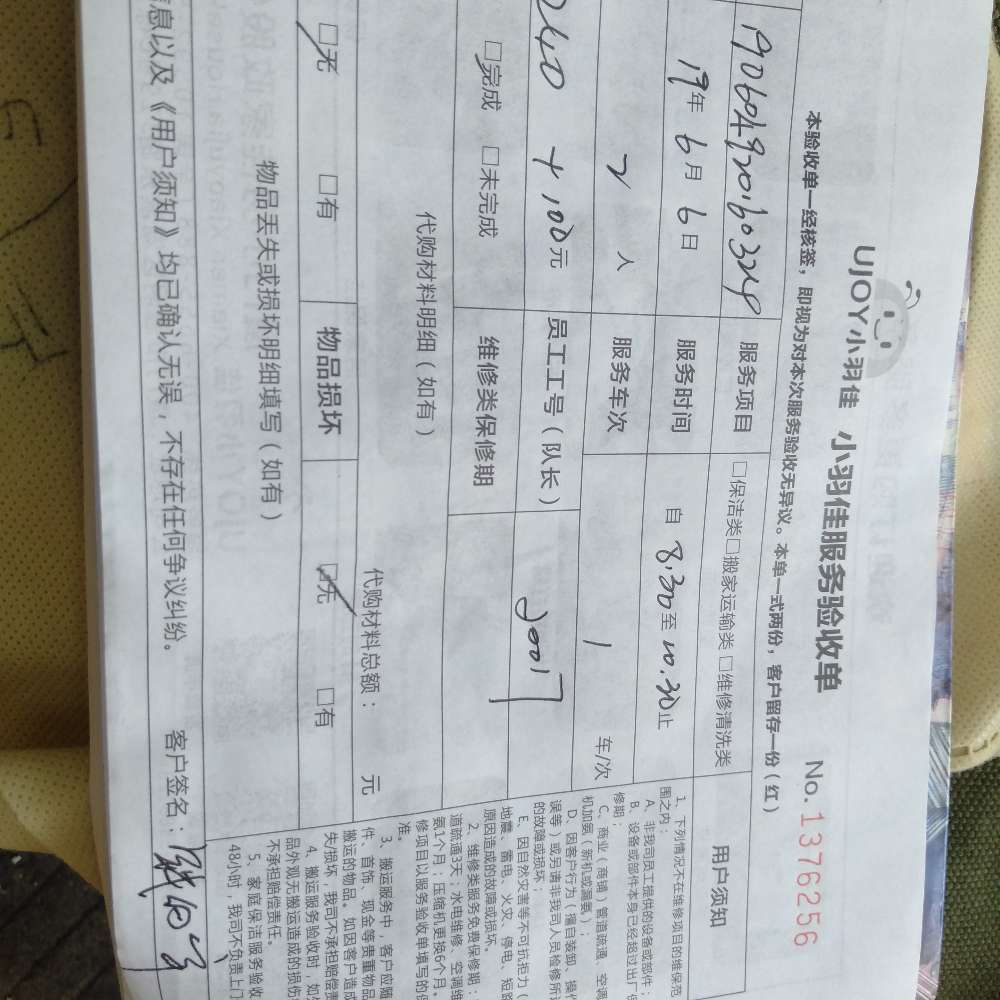 UJOY小羽佳 小羽佳服务验收单 No.1376256
本验收单一经核签，即视为对本次服务验收无异议。本单一式两份，客户留存一份（红）
服务项目 □保洁类□搬家运输类□维修清洗类
19年6月6日 服务时间 自8:30至10:30止
2人 服务车次 1 车/次
240+100元 员工工号（队长） 20017
□完成 □未完成 维修类保修期
代购材料明细（如有） 代购材料总额： 元
□无 □有 物品损坏 □无 □有
物品丢失或损坏明细填写（如有）
息以及《用户须知》均已确认无误，不存在任何争议纠纷。 客户签名：
用户须知
1、下列情况不在维修项目的维保范
围之内：
A、非我司员工提供的设备或部件；
B、设备或部件本身已经超过出厂
修期；
C、商业（商铺）管道疏通、空调
机加氨（新机或漏氨）；
D、因客户行为（擅自装卸、操作
误等）或另请非我司人员检修所
的故障或损坏；
E、因自然灾害等不可抗拒力（
地震、雷电、火灾、停电、短路
原因造成的故障或损坏。
2、维修类服务免费保修期：
道疏通3天；水电维修、空调维
氨1个月；压缩机更换6个月。
修项目以服务验收单填写的
准。
3、搬运服务中，客户应随
件、首饰、现金等贵重物品
搬运的物品。如因客户造成
失/损坏，我司不承担赔偿责
4、搬运服务验收时，如
品外观无搬运造成的损伤
不承担赔偿责任。
5、家庭保洁服务验收
48小时，我司不负责上门